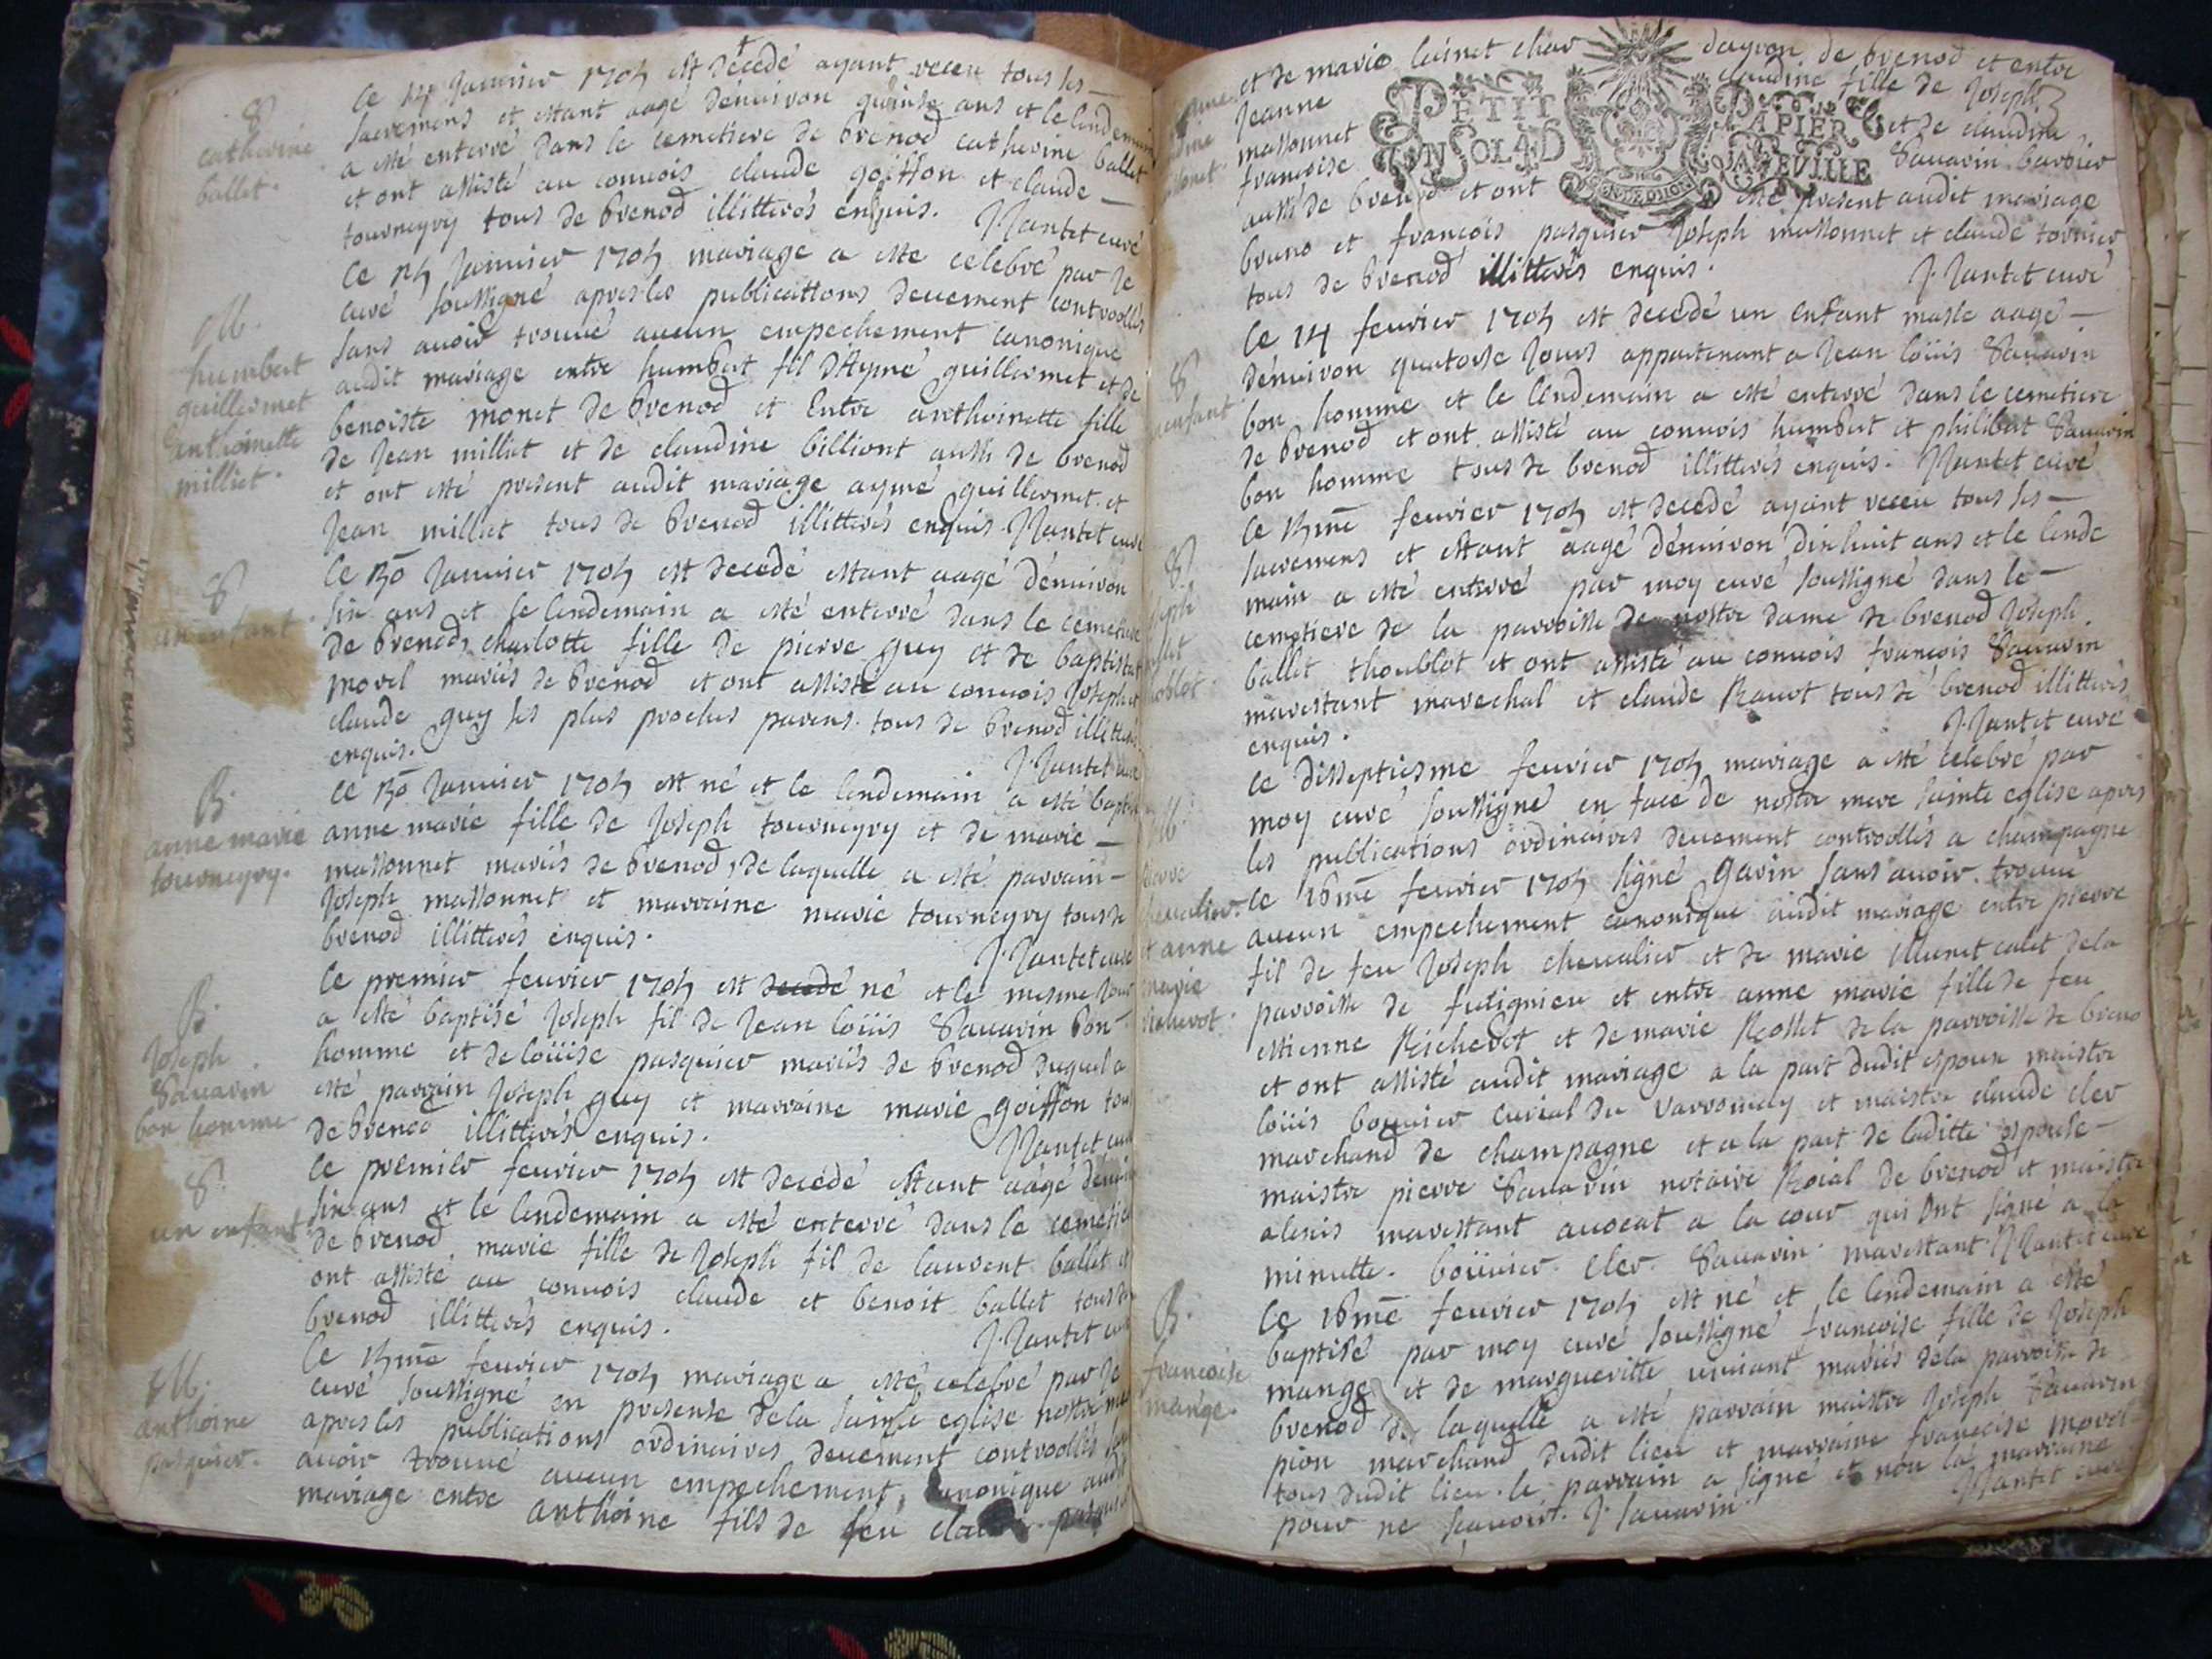 Ce 14 Januier 1705 est décedé ayant receu tous les
sacremens et estant aagé dénuiron quinse ans et le lendemain
a esté enterré dans le cemetiere de brenod catherine ballet
et ont assisté au conuois claude goiffon et claude
tourneyry tous de brenod illitterés enquis. J Jantet curé
S
catherine
ballet.
Ce Januier 1705 mariage a esté celebré par Je
curé soussigné apres les publications deuement controollés
sans auoir trouué aucun empechement canonique
audit mariage entre humbert fil d'Aymé guillermet et de
benoiste monet de brenod et Entre anthoinette fille
de Jean milliet et de claudine billiont aussi de brenod
et ont esté present audit mariage aymé guillermet et
Jean milliet tous de brenod illitterés enquis. J Jantet curé
M.
humbert
guillermet
anthoinette
milliet.
Ce Januier 1705 est decedé estant aagé dénuiron
six ans et le lendemain a esté enterré dans le cemetiere
de brenod, charlotte fille de pierre guy et de baptistat
morel mariés de brenod et ont assisté au conuois Joseph et
claude guy ses plus proches parens tous de brenod illitterés
enquis. J. Jantet curé
S
un enfant
Ce Januier 1705 est né et le lendemain a esté baptisé
anne marie fille de Joseph tourneyry et de marie
massonnet mariés de brenod, de laquelle a esté parrain
Joseph massonnet et marraine marie tourneyry tous de
brenod illitterés enquis. J. Jantet curé
B.
anne marie
tourneyry.
Ce premier feurier 1705 est decedé né et le mesme Jour
a esté baptisé Joseph fil de Jean loüis Sauarin bon
homme et de loüise pasquier mariés de brenod duquel a
esté parrain Joseph guy et marraine marie goiffon tous
de brenod illitterés enquis. J Jantet curé
B.
Joseph
Sauarin
bon homme
Ce premier feurier 1705 est decedé estant aagé
six ans et le lendemain a esté enterré dans le cemetiere
de brenod, marie fille de Joseph fil de laurent ballet et
ont assisté au conuois claude et benoit ballet tous de
brenod illitterés enquis. J. Jantet curé
S.
un enfant
Ce feurier 1705 mariage a esté celebré par Je
curé soussigné en presense de la sainte eglise nostre
apres les publications ordinaires deuement controollés
auoir trouué aucun empechement canonique audit
mariage entre anthoine fils de feu
M.
anthoine
pasquier.
et de marie de brenod et entre
Jeanne claudine fille de Joseph
massonnet et de claudine
francoise Sauarin barbier
aussi de brenod et ont esté present audit mariage
bruno et francois pasquier Joseph massonnet et claude tornier
tous de brenod illitterés enquis. J. Jantet curé
PETIT PAPIER
UN SOL 4 D LA FEVILLE
Ce 14 feurier 1705 est decedé un enfant masle aagé
dénuiron quatorse Jours appartenant a Jean loüis Sauarin
bon homme et le lendemain a esté enterré dans le cemetiere
de brenod et ont assisté au conuois humbert et philibert Sauarin
bon homme tous de brenod illitterés enquis. J Jantet curé
S
enfant
Ce feurier 1705 est decedé ayant receu tous les
sacremens et estant aagé dénuiron dixhuit ans et le lende
main a esté enterré par moy curé soussigné dans le
cemetiere de la parroisse de nostre dame de brenod Joseph
ballet thoublot et ont assisté au conuois francois Sauarin
marestant marechal et claude Rauot tous de brenod illitterés
enquis. J. Jantet curé
S
Ce disseptiesme feurier 1705 mariage a esté celebré par
moy curé soussigné en face de nostre mere sainte eglise apres
les publications ordinaires deuement controollés a champagne
Ce 16me feurier 1705 signé gavin sans auoir trouué
aucun empechement canonique audit mariage entre pierre
fil de feu Joseph cheualier et de marie de la
parroisse de et entre anne marie fille de feu
estienne Richerot et de marie Rosset de la parroisse de breno
et ont assisté audit mariage a la part dudit espoux maistre
loüis bouuier curial du Varromay et maistre claude cler
marchand de champagne et a la part de laditte espouse
maistre pierre Sauarin notaire Roial de brenod et maistre
alexis marestant auocat a la cour qui ont signé a la
minutte. boüuier. Cler. Sauarin. marestant. J Jantet curé
M.
cheualier.
et anne
marie
Richerot.
Ce 18me feurier 1705 est né et le lendemain a esté
baptisé par moy curé soussigné francoise fille de Joseph
mange et de margueritte mariés de la parroisse de
brenod de laquelle a esté parrain maistre Joseph Sauarin
pion marchand dudit lieu et marraine francoise morel
tous dudit lieu. le parrain a signé et non la marraine
pour ne scauoir. J. Sauarin. J Jantet curé
B.
francoise
mange.